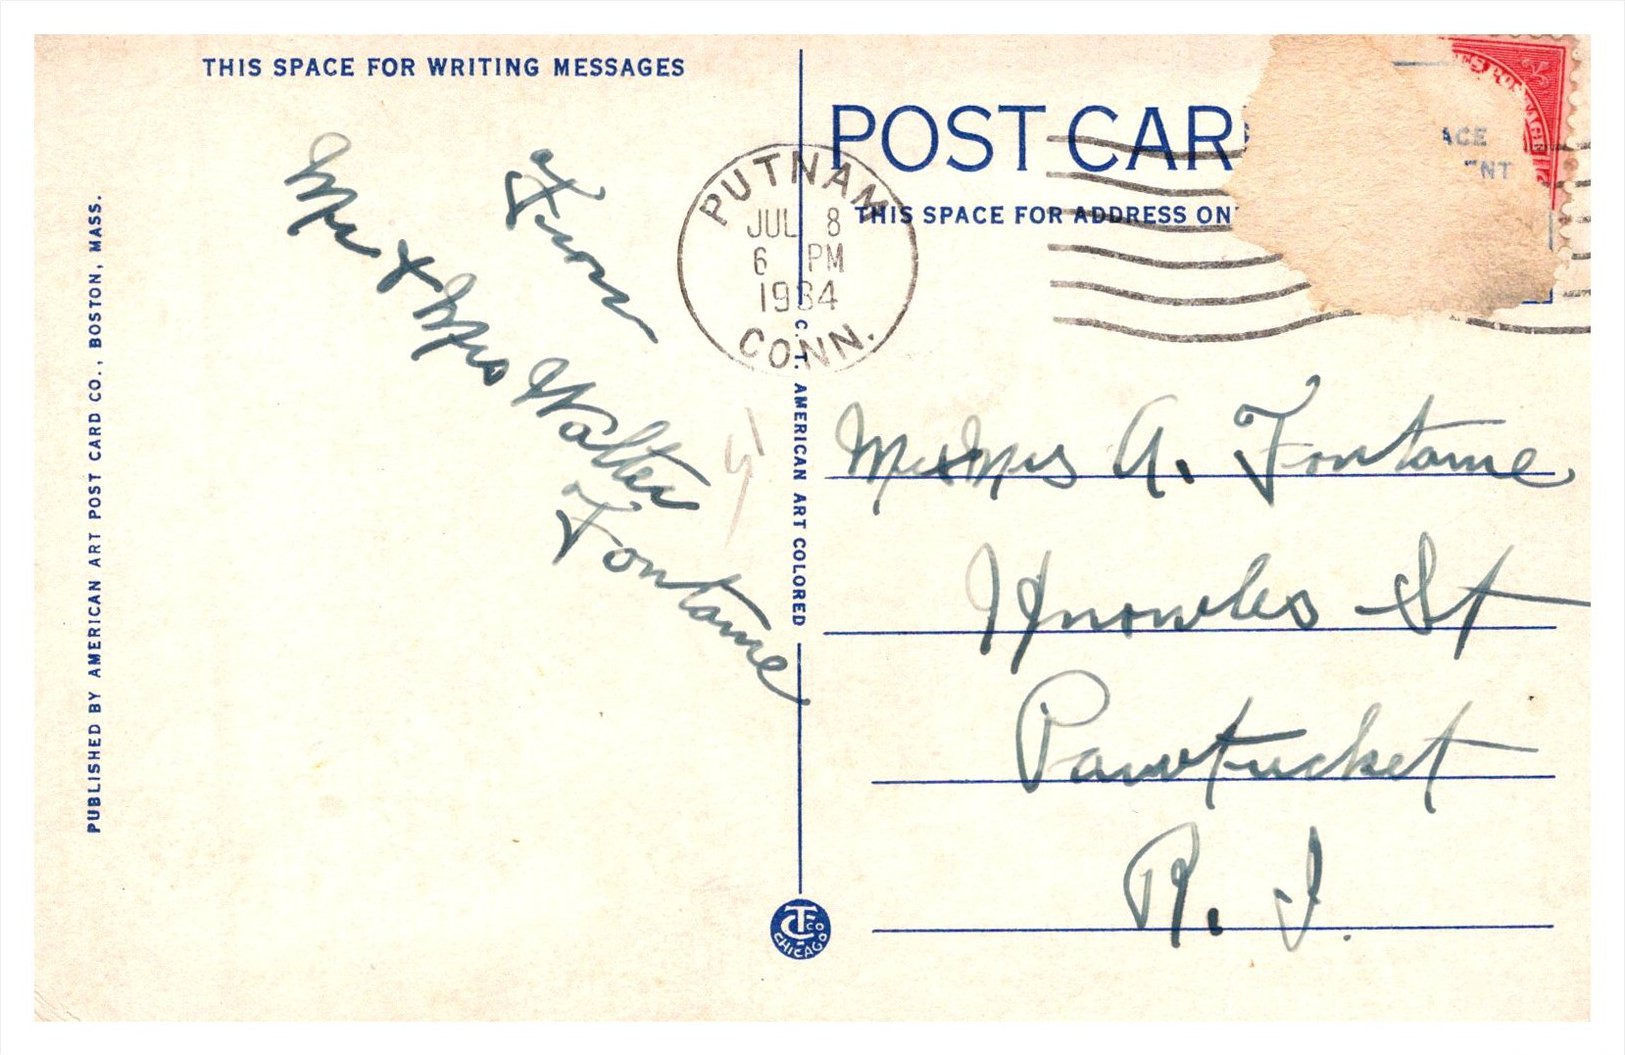 THIS SPACE FOR WRITING MESSAGES
From
Mr & Mrs Walter
Fontaine
PUBLISHED BY AMERICAN ART POST CARD CO., BOSTON, MASS.
C. T. AMERICAN ART COLORED
CTCO
CHICAGO
PUTNAM
JUL 8
6 PM
1934
CONN.
POST CAR
THIS SPACE FOR ADDRESS ON
ACE
ENT
Mr & Mrs A. Fontaine
Knowles St
Pawtucket
R. I.